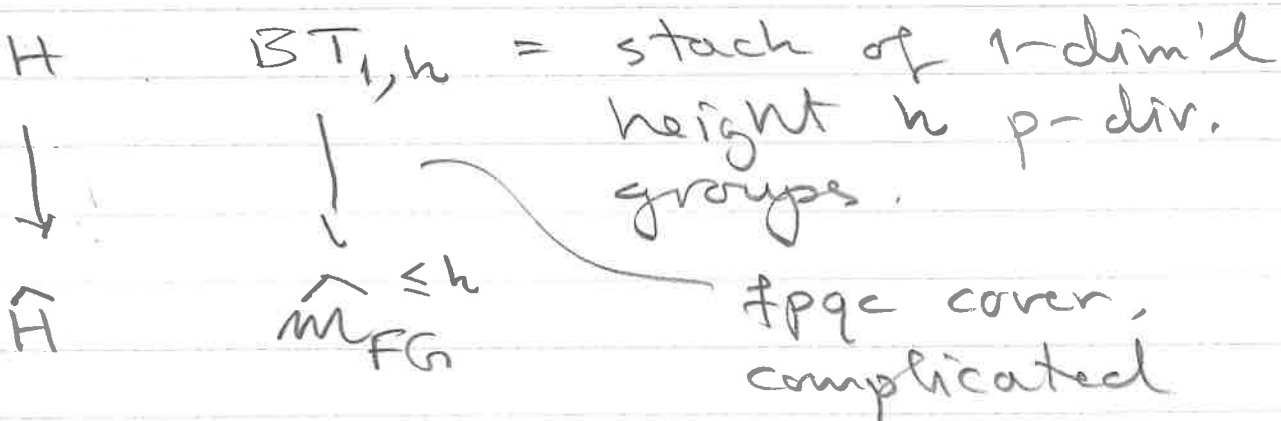 H BT_{1,h} = stack of 1-dim'l
height h p-div.
groups.
Ĥ \hat{M}_{FG}^{≤h} fpqc cover,
complicated